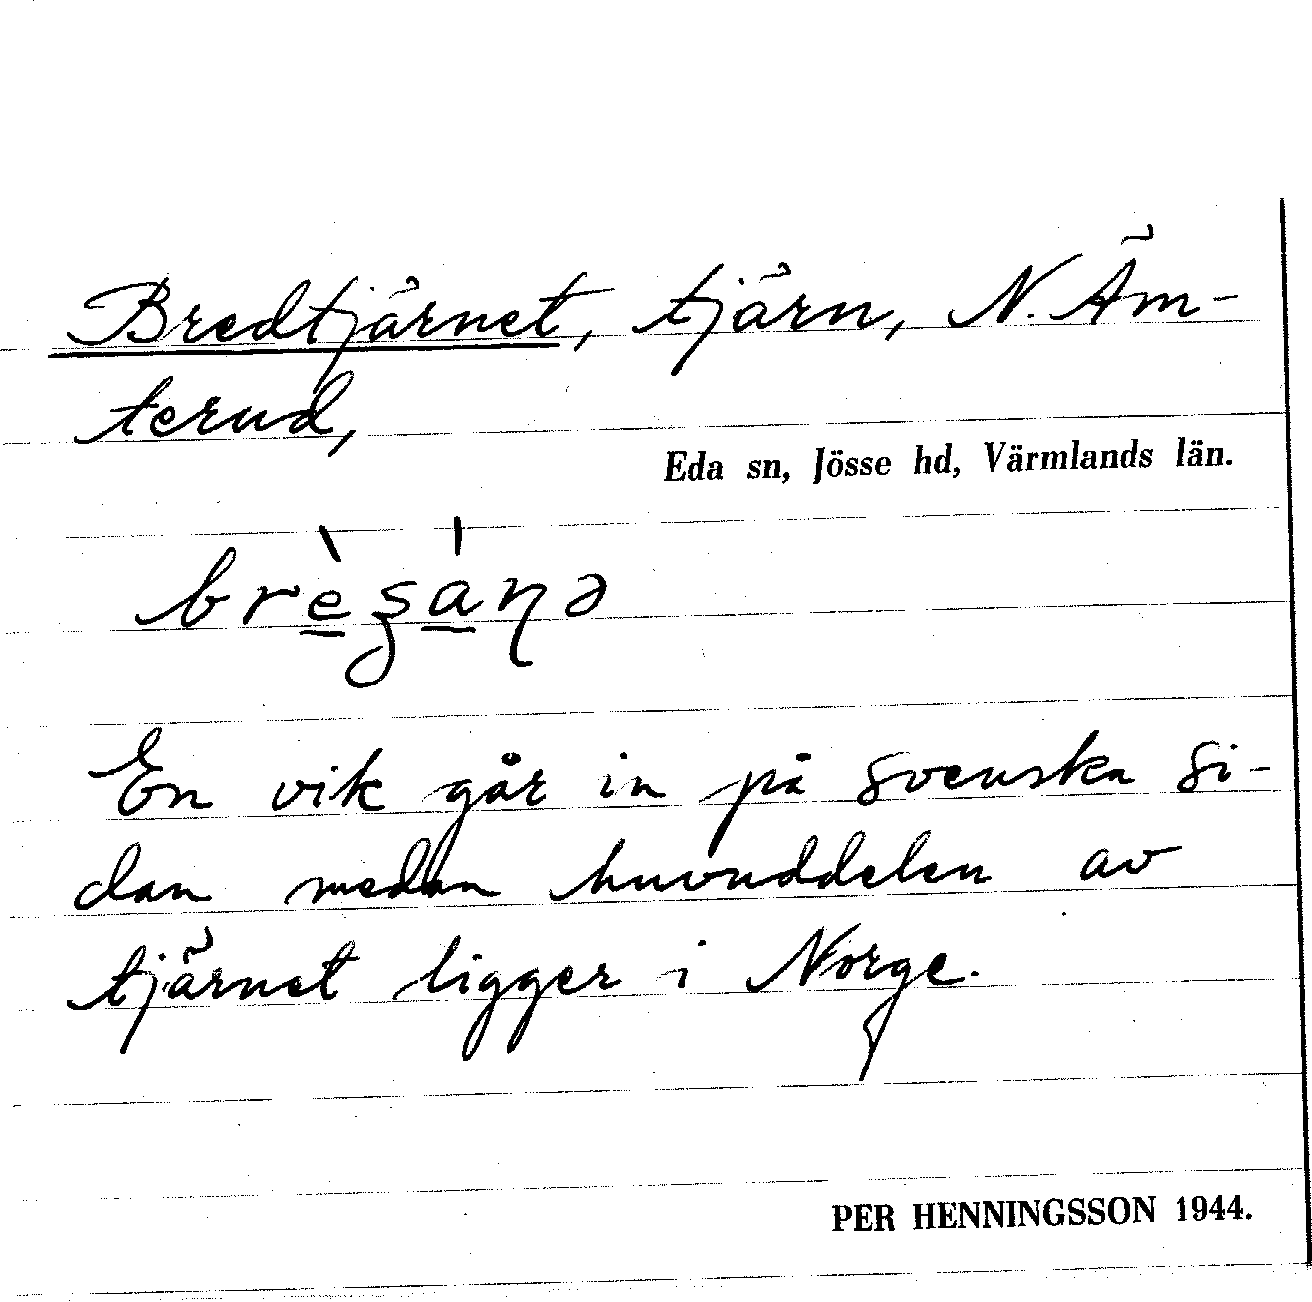 Bredtjärnet, tjärn, N. Äm-
terud,
Eda sn, Jösse hd, Värmlands län.
En vik går in på svenska si-
dan medan huvuddelen av
tjärnet ligger i Norge.
PER HENNINGSSON 1944.